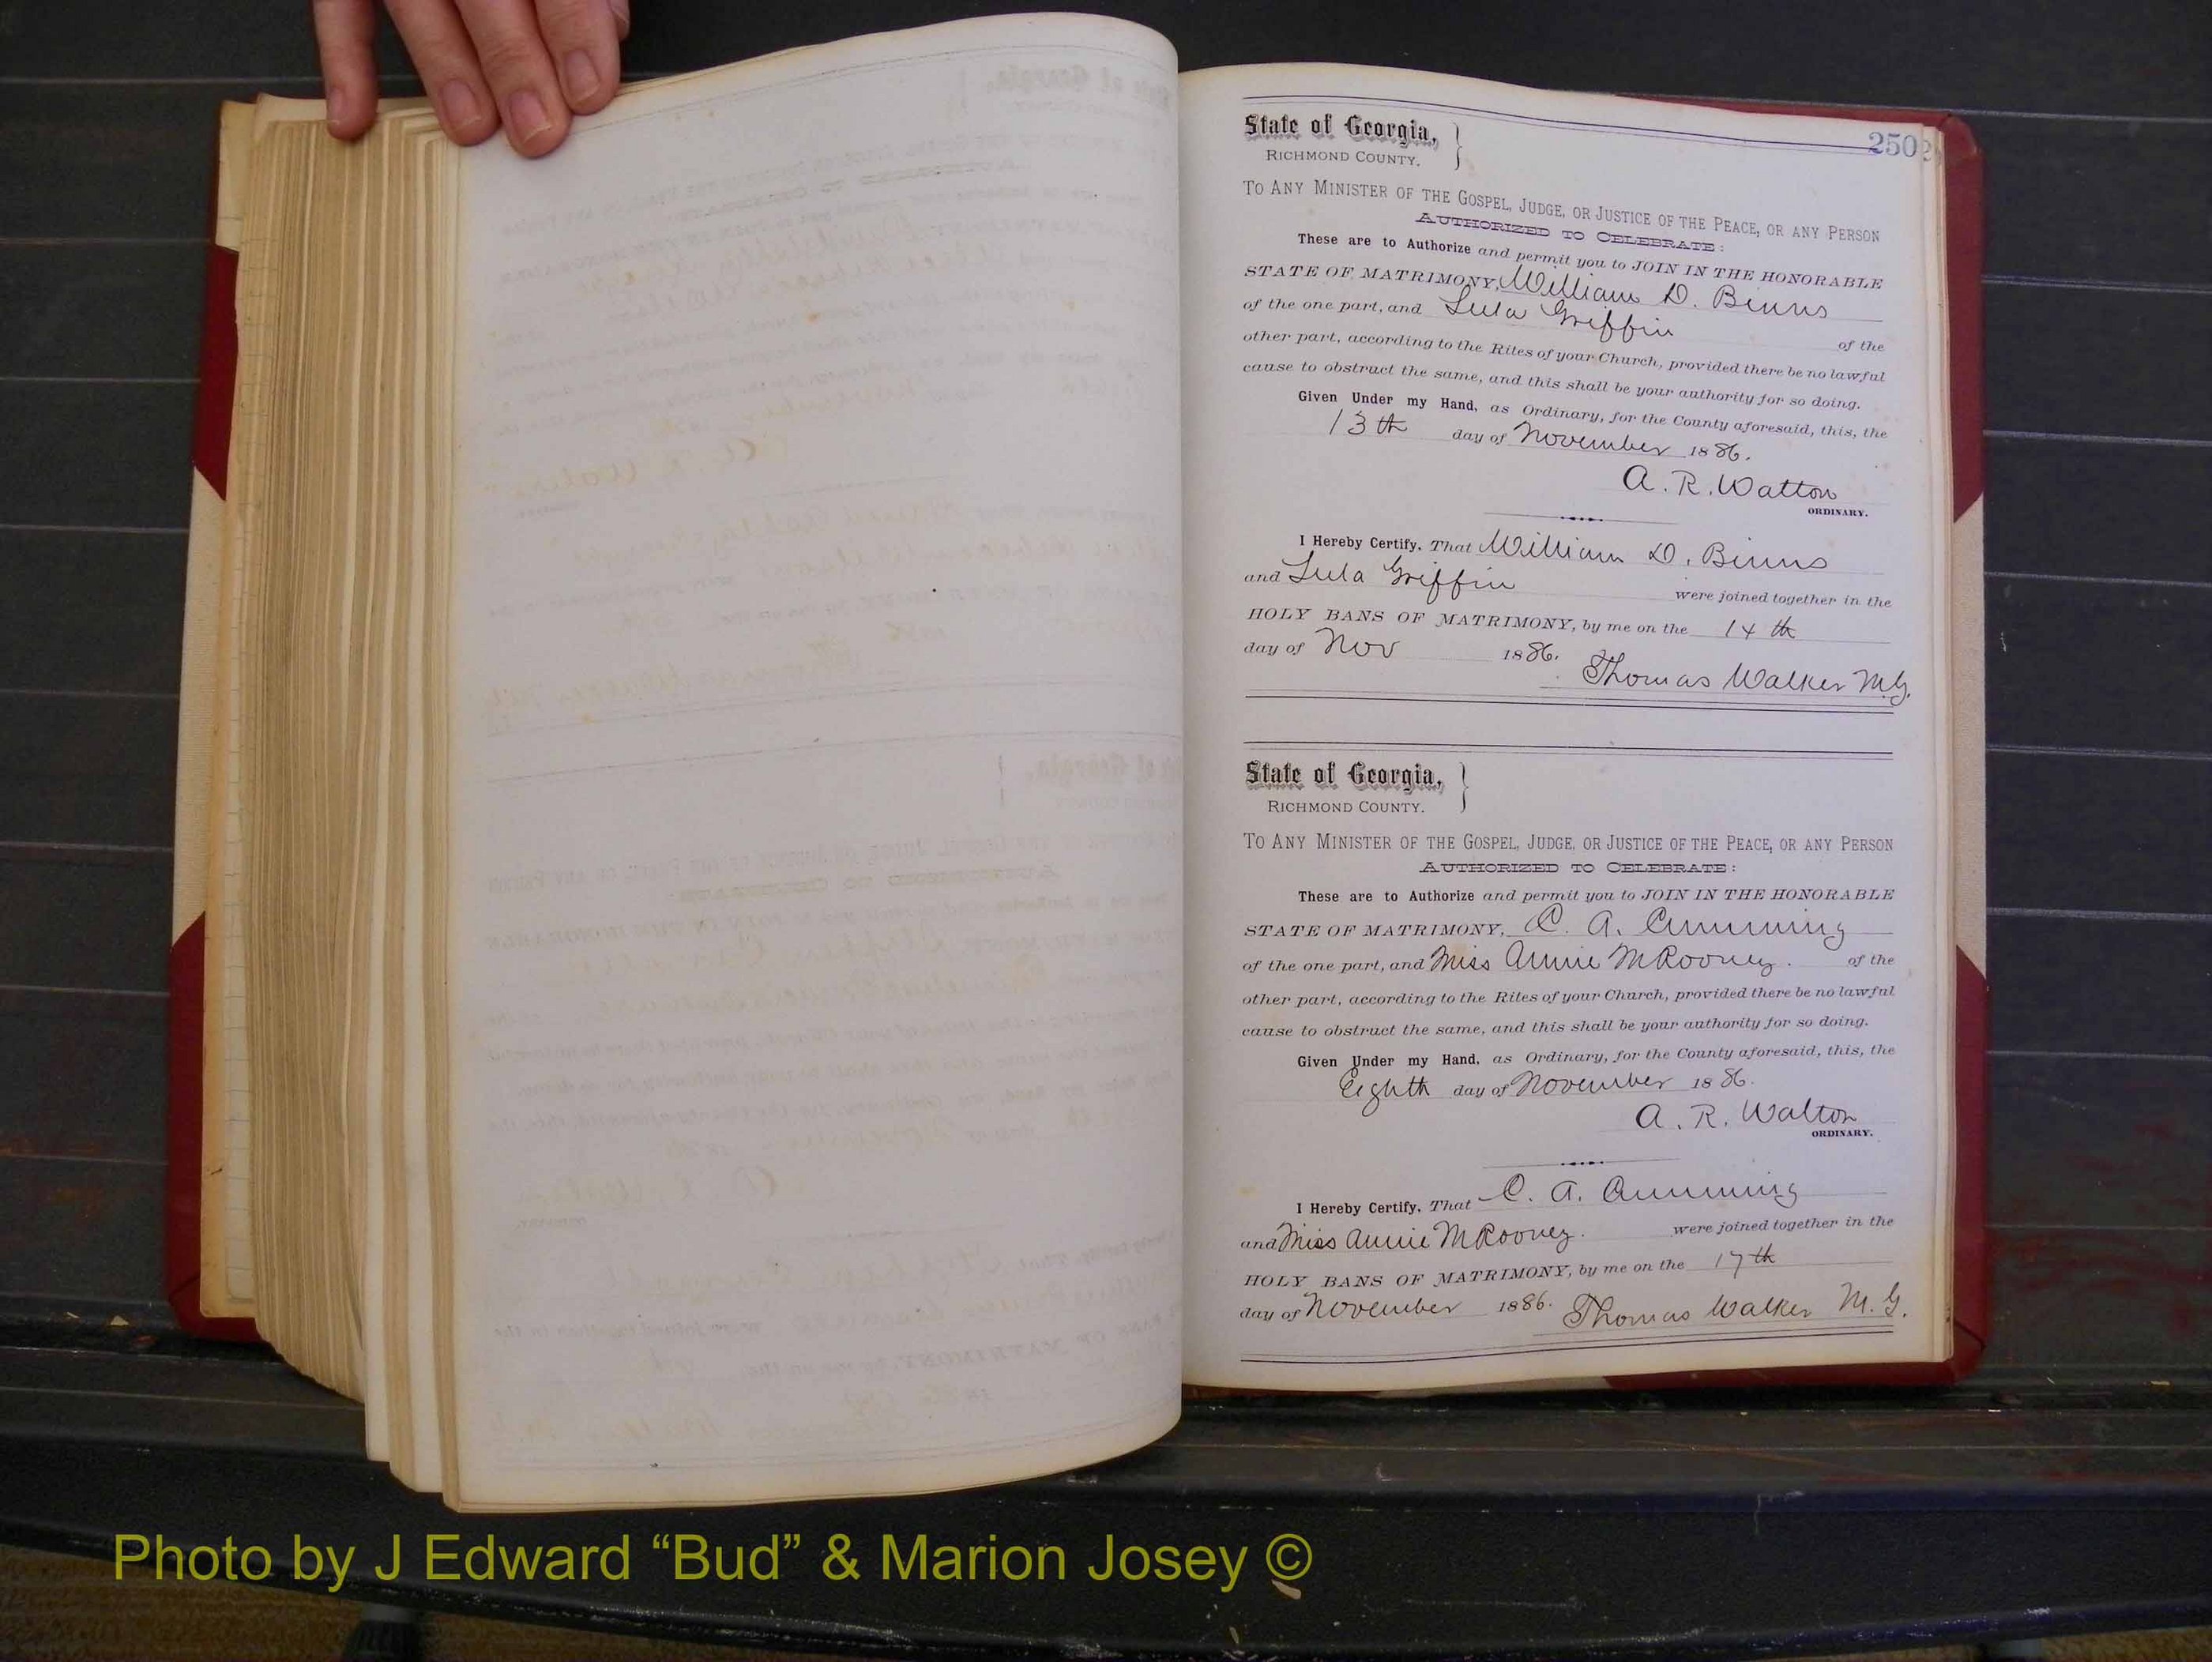 250
State of Georgia,
RICHMOND COUNTY.
TO ANY MINISTER OF THE GOSPEL, JUDGE, OR JUSTICE OF THE PEACE, OR ANY PERSON
AUTHORIZED TO CELEBRATE:
These are to Authorize and permit you to JOIN IN THE HONORABLE
STATE OF MATRIMONY, William D. Binns
of the one part, and Lula Griffin of the
other part, according to the Rites of your Church, provided there be no lawful
cause to obstruct the same, and this shall be your authority for so doing.
Given Under my Hand, as Ordinary, for the County aforesaid, this, the
13th day of November 1886.
A. R. Walton
ORDINARY.
I Hereby Certify, That William D. Binns
and Lula Griffin were joined together in the
HOLY BANS OF MATRIMONY, by me on the 14th
day of Nov 1886.
Thomas Walker M.G.
State of Georgia,
RICHMOND COUNTY.
TO ANY MINISTER OF THE GOSPEL, JUDGE, OR JUSTICE OF THE PEACE, OR ANY PERSON
AUTHORIZED TO CELEBRATE:
These are to Authorize and permit you to JOIN IN THE HONORABLE
STATE OF MATRIMONY, C. A. Cumming
of the one part, and Miss Annie McRooney. of the
other part, according to the Rites of your Church, provided there be no lawful
cause to obstruct the same, and this shall be your authority for so doing.
Given Under my Hand, as Ordinary, for the County aforesaid, this, the
Eighth day of November 1886.
A. R. Walton
ORDINARY.
I Hereby Certify, That C. A. Cumming
and Miss Annie McRooney. were joined together in the
HOLY BANS OF MATRIMONY, by me on the 17th
day of November 1886. Thomas Walker M. G.
Photo by J Edward “Bud” & Marion Josey ©